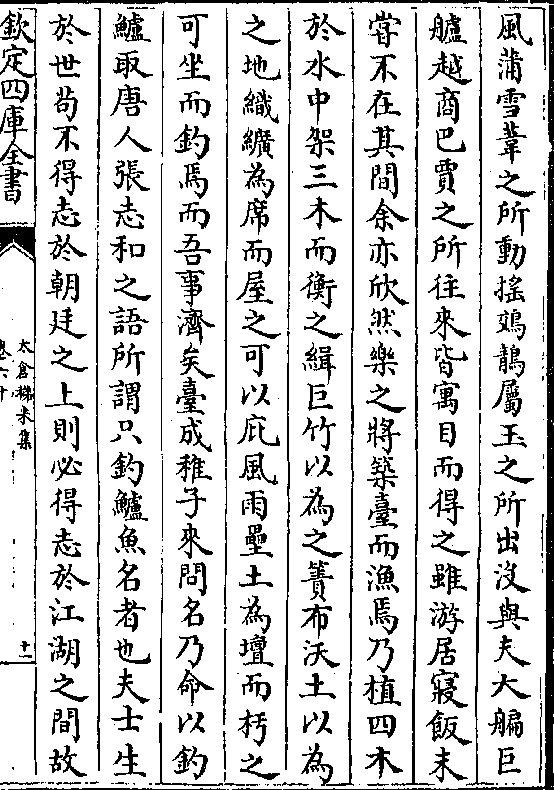 風蒲雪葦之所動搖鵁鶄屬玉之所出沒與夫大艑巨
艫越商巴賈之所往來皆寓目而得之雖游居寢飯未
嘗不在其間余亦欣然樂之將築臺而漁焉乃植四木
於水中架三木而衡之緝巨竹以為之簀布沃土以為
之地織纊為席而屋之可以庇風雨壘土為壇而杇之
可坐而釣焉而吾事濟矣臺成稚子來問名乃命以釣
鱸取唐人張志和之語所謂只釣鱸魚名者也夫士生
於世苟不得志於朝廷之上則必得志於江湖之間故
欽定四庫全書
太倉稊米集
卷六十
十一